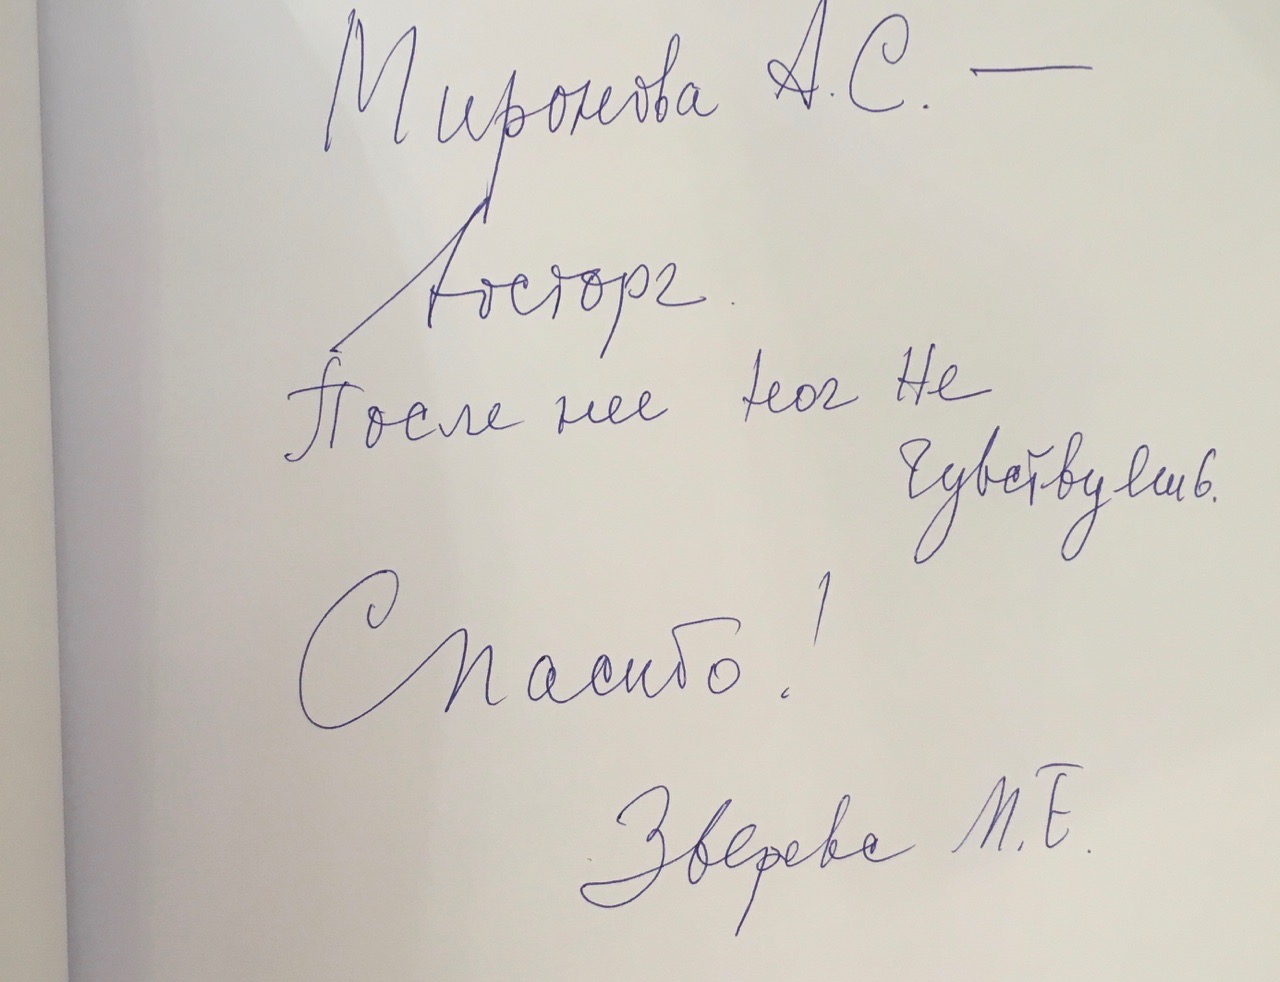 Миронова А.С. —
восторг.
После нее ног не
чувствуешь.
Спасибо!
Зверева М.Е.